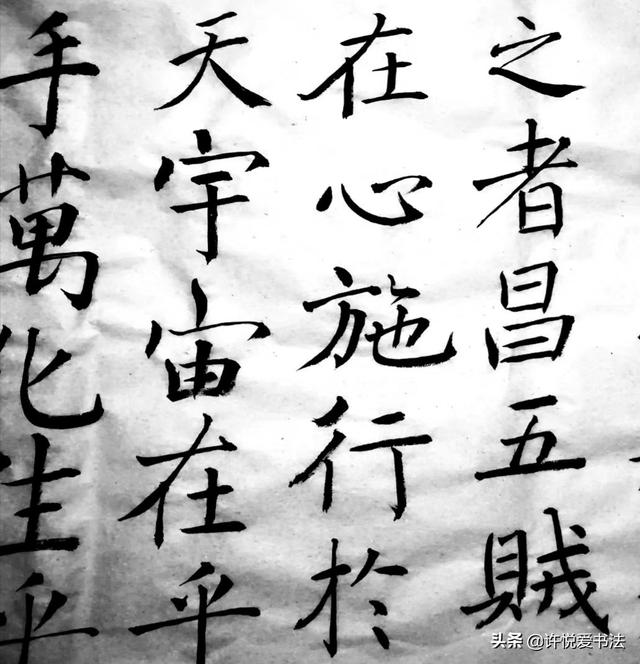 之者昌五賊
在心施行於
天宇宙在乎
手萬化生乎
头条 @许悦爱书法